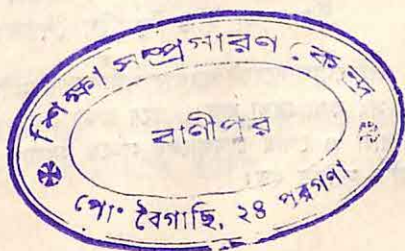 শিক্ষা সম্প্রসারণ কেন্দ্র
বাণীপুর
পো॰ বৈগাছি, ২৪ পরগণা